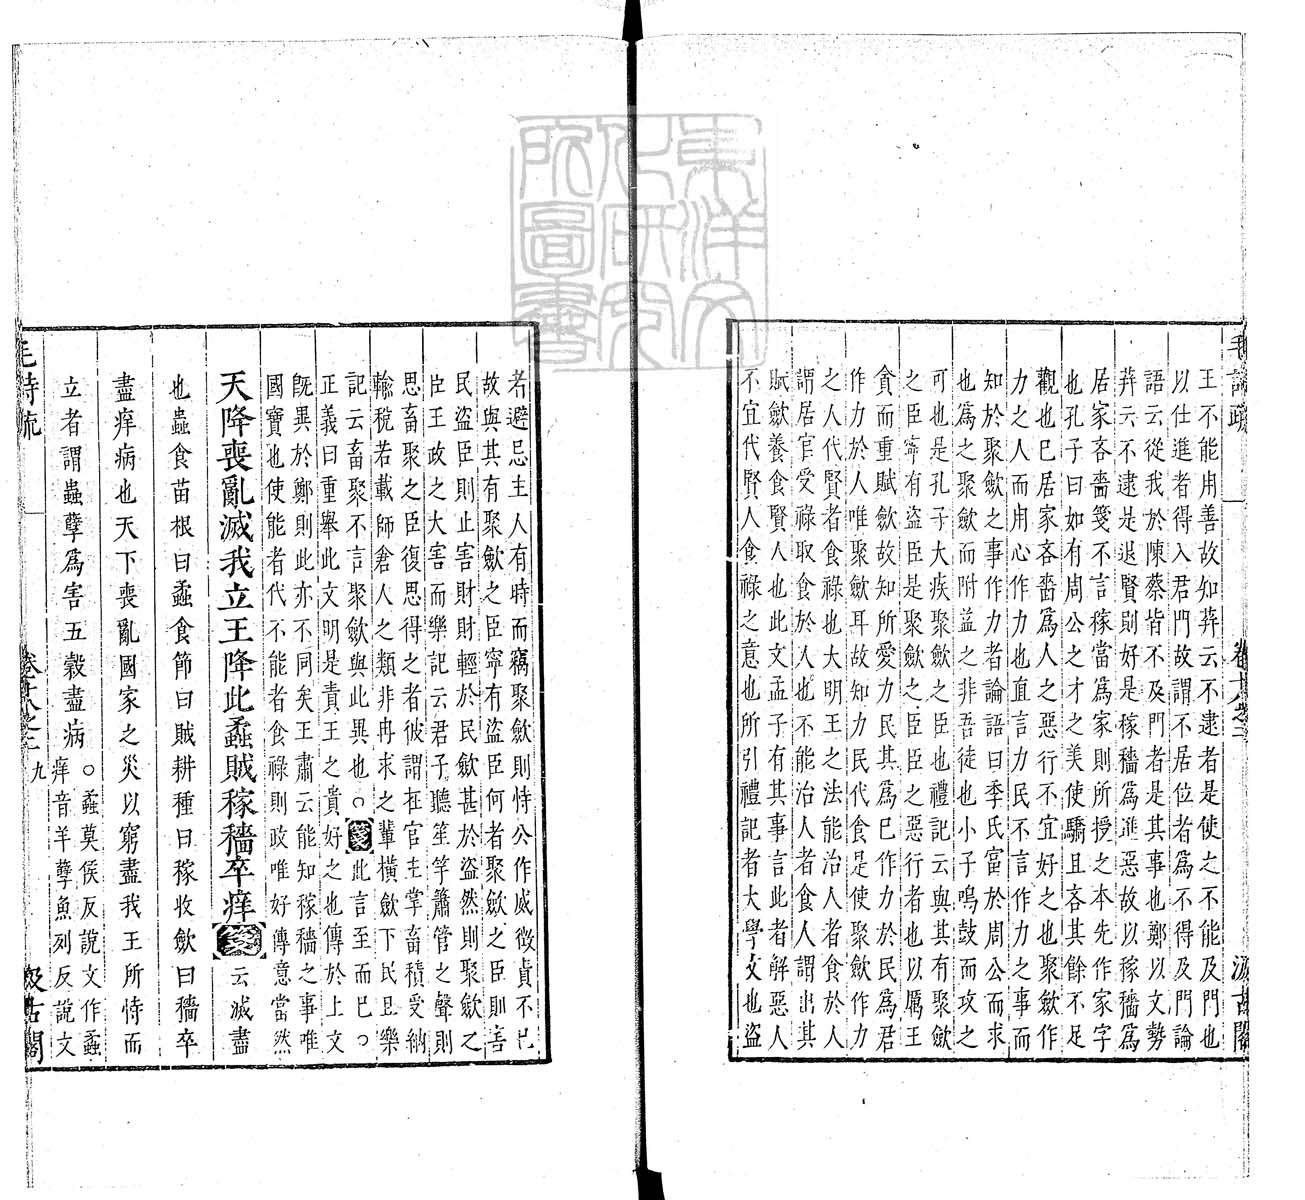 毛詩疏 卷十八之二 汲古閣
王不能用善故知荓云不逮者是使之不能及門也
以仕進者得入君門故謂不居位者爲不得及門論
語云從我於陳蔡皆不及門者是其事也鄭以文勢
荓云不逮是退賢則好是稼穡爲進惡故以稼穡爲
居家吝嗇箋不言稼當爲家則所授之本先作家字
也孔子曰如有周公之才之美使驕且吝其餘不足
觀也已居家吝嗇爲人之惡行不宜好之也聚斂作
力之人而用心作力也直言力民不言作力之事而
知於聚斂之事作力者論語曰季氏富於周公而求
也爲之聚斂而附益之非吾徒也小子鳴鼓而攻之
可也是孔子大疾聚斂之臣也禮記云與其有聚斂
之臣寧有盜臣是聚斂之臣臣之惡行者也以厲王
貪而重賦斂故知所愛力民其爲已作力於民爲君
作力於人唯聚斂耳故知力民代食是使聚斂作力
之人代賢者食祿也大明王之法能治人者食於人
謂居官受祿取食於人也不能治人者食人謂出其
賦斂養食賢人也此文孟子有其事言此者解惡人
不宜代賢人食祿之意也所引禮記者大學文也盜
者避忌主人有時而竊聚斂則恃公作威徵責不已
故與其有聚斂之臣寧有盜臣何者聚斂之臣則害
民盜臣則止害財財輕於民斂甚於盜然則聚斂之
臣王政之大害而樂記云君子聽笙竽簫管之聲則
思畜聚之臣復思得之者彼謂在官主掌畜積受納
輸稅若載師倉人之類非冉求之輩橫斂下民且樂
記云畜聚不言聚斂與此異也○箋此言至而已○
正義曰重舉此文明是責王之貴好之也傳於上文
旣異於鄭則此亦不同矣王肅云能知稼穡之事唯
國寶也使能者代不能者食祿則政唯好傳意當然
天降喪亂滅我立王降此蟊賊稼穡卒痒箋云滅盡
也蟲食苗根曰蟊食節曰賊耕種曰稼收斂曰穡卒
盡痒病也天下喪亂國家之災以窮盡我王所恃而
立者謂蟲孽爲害五穀盡病○蟊莫侯反說文作蟊
痒音羊孽魚列反說文
毛詩疏 卷十八之二 九 汲古閣